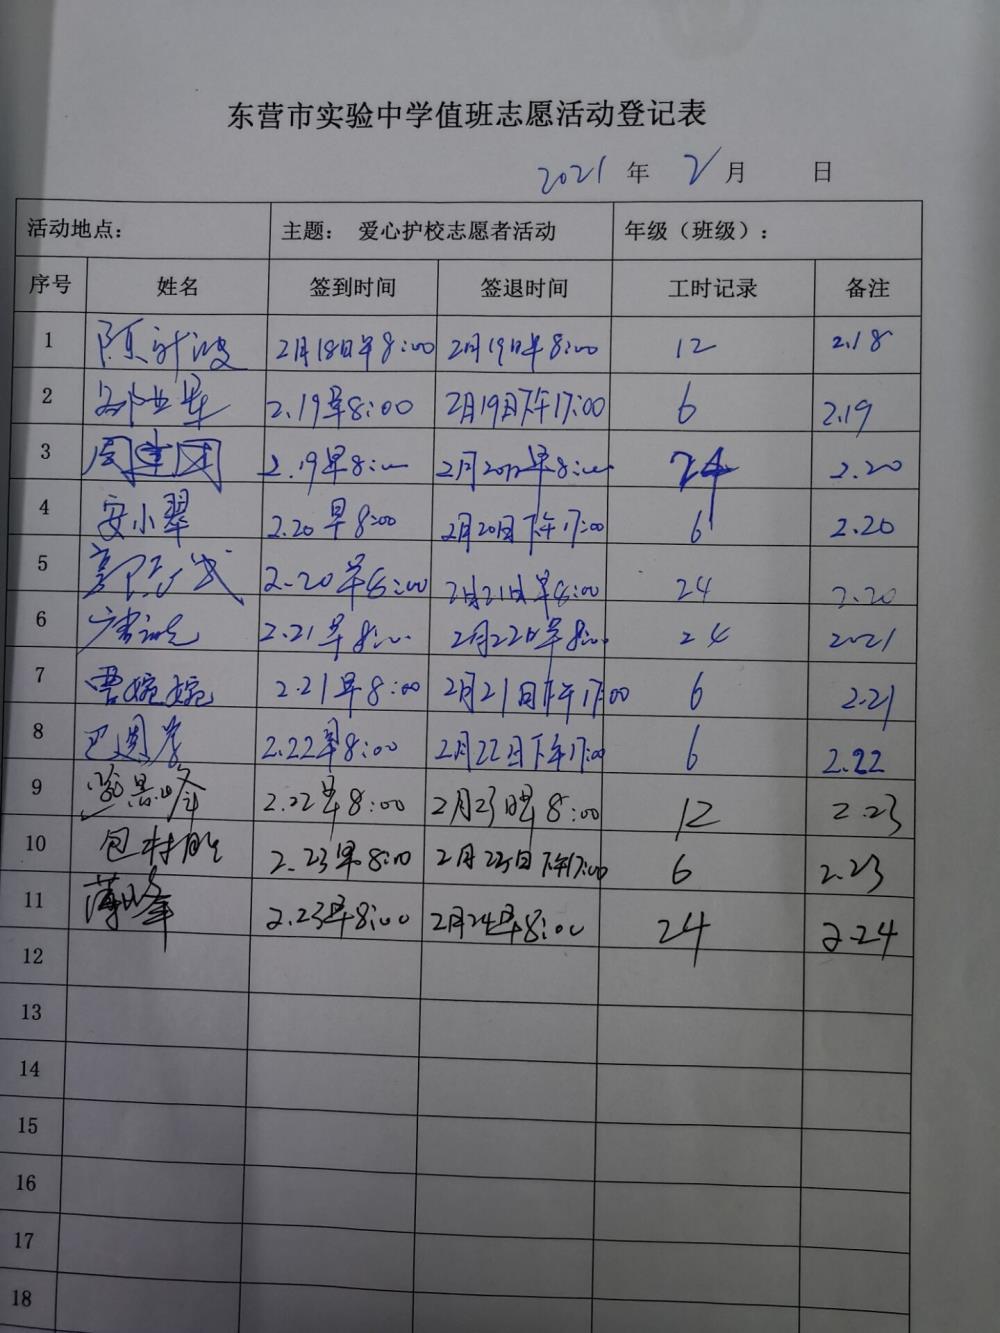 东营市实验中学值班志愿活动登记表
2021 年 2 月 日
活动地点： 主题： 爱心护校志愿者活动 年级（班级）：
序号 姓名 签到时间 签退时间 工时记录 备注
1 2月18日早8:00 2月19日早8:00 12 2.18
2 2.19早8:00 2月19日下午17:00 6 2.19
3 周建国 2.19早8:00 2月20日早8:00 24 2.20
4 安小翠 2.20早8:00 2月20日下午17:00 6 2.20
5 2.20早8:00 2月21日早8:00 24 2.20
6 2.21早8:00 2月22日早8:00 24 2021
7 曹婉婉 2.21早8:00 2月21日下午17:00 6 2.21
8 2.22早8:00 2月22日下午17:00 6 2.22
9 2.22早8:00 2月23日早8:00 12 2.23
10 包村胜 2.23早8:00 2月23日下午17:00 6 2.23
11 薄峰 2.23早8:00 2月24早8:00 24 2.24
12
13
14
15
16
17
18